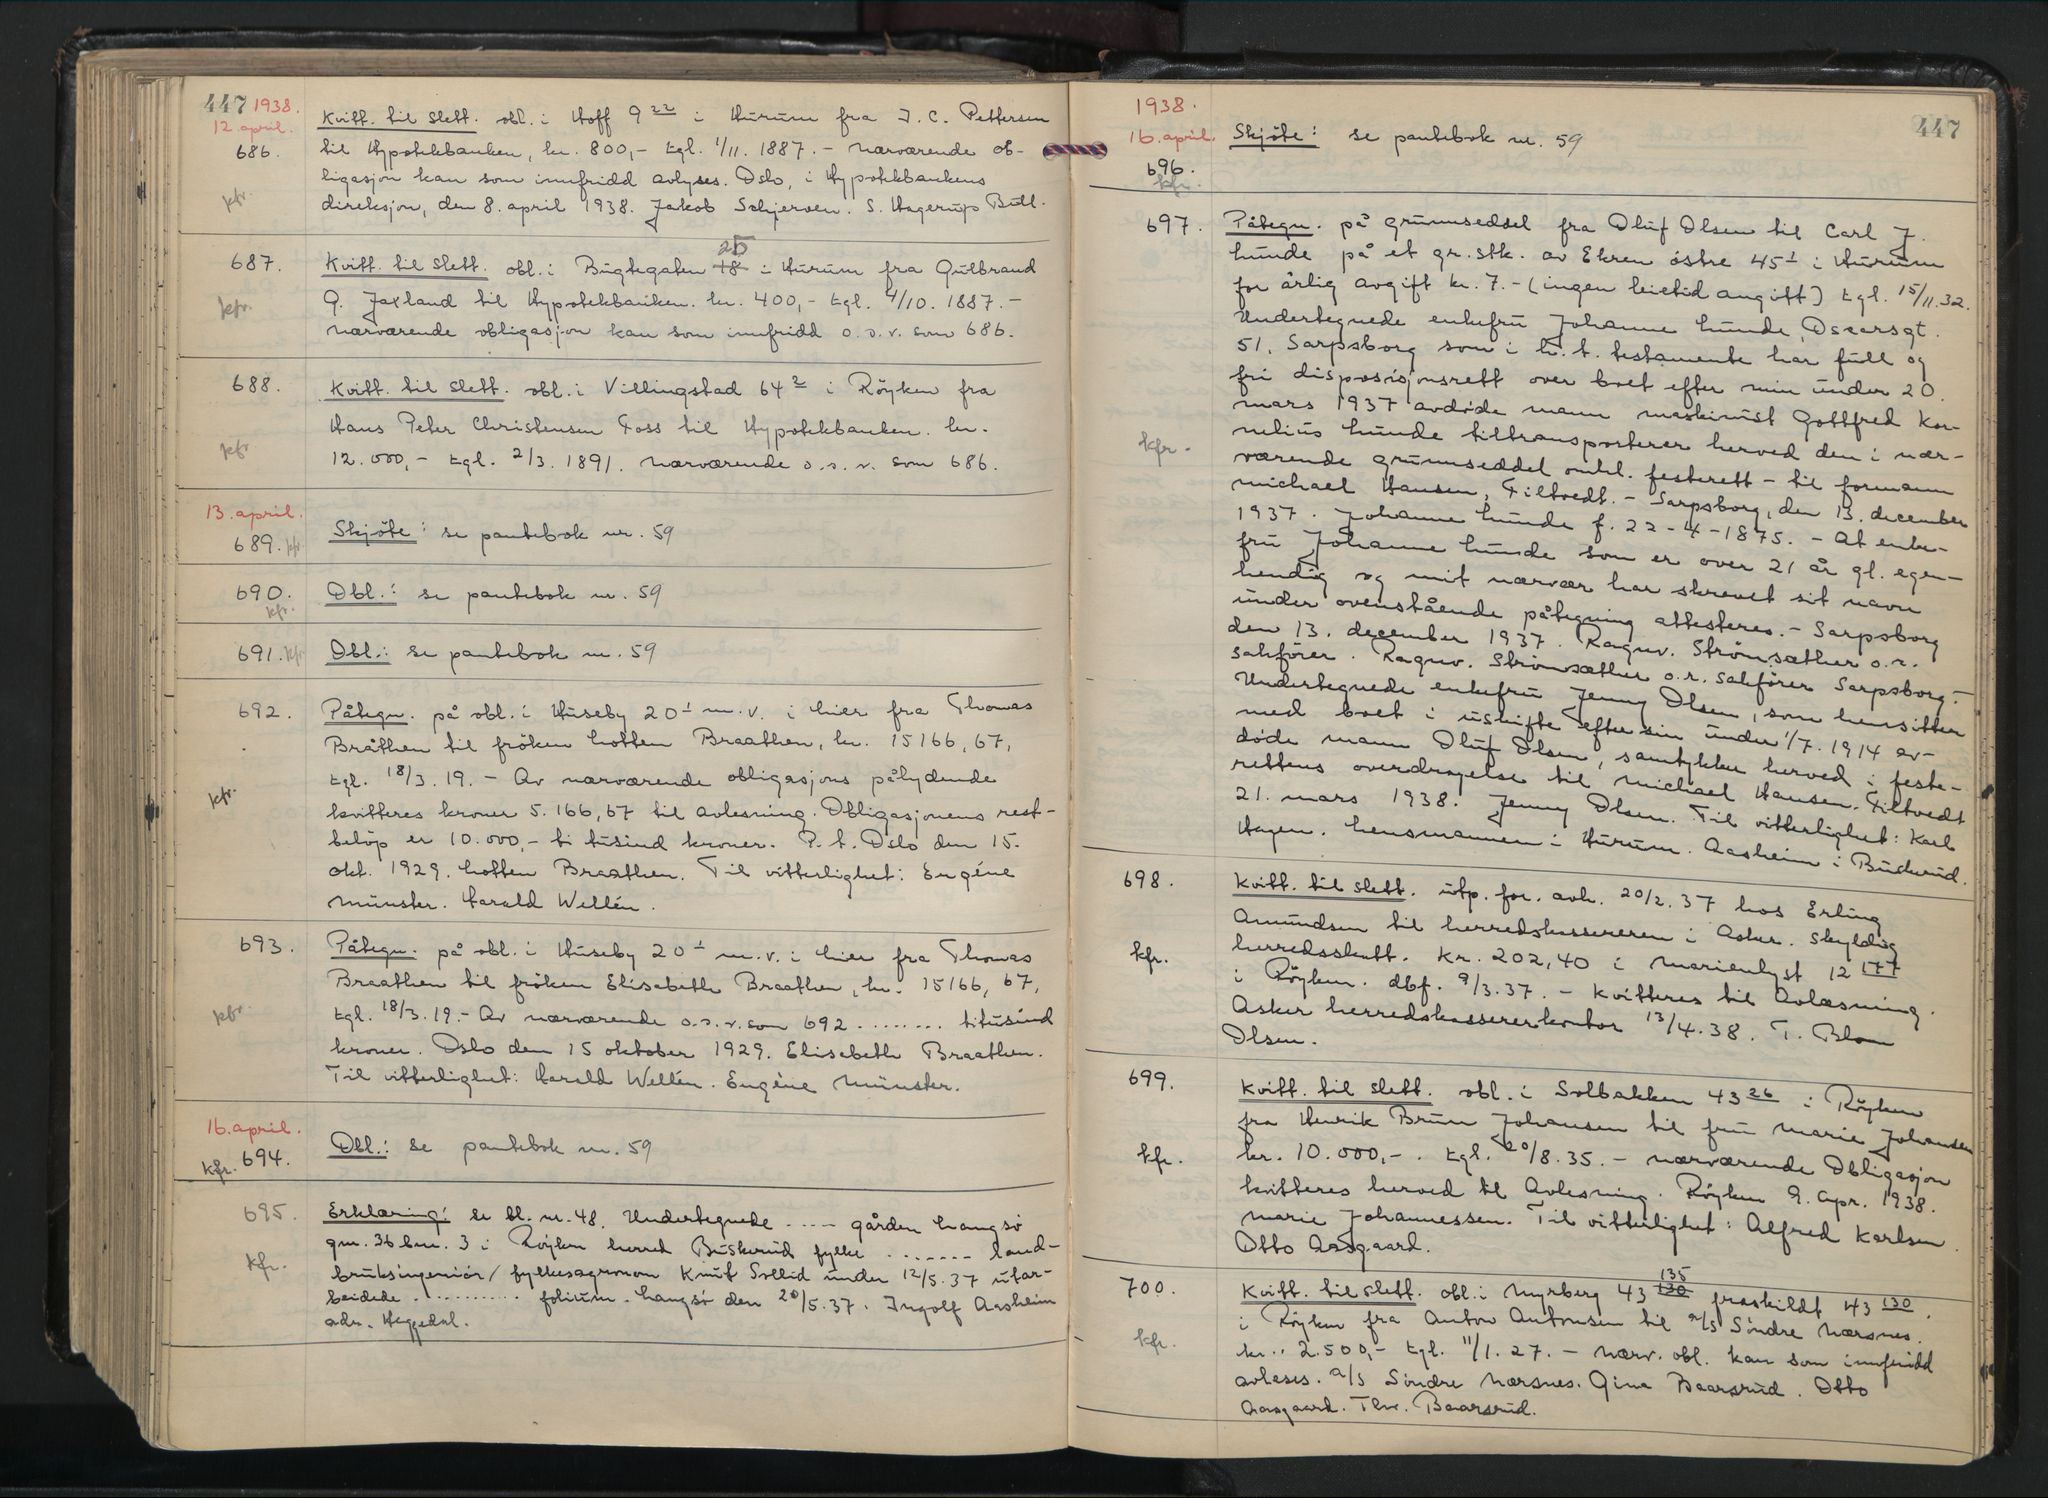 447 1938.
12. april.
686.
kfr.
Kvitt. til slett. obl. i Hoff 9 22 i Hurum fra J. C. Pettersen
til Hypotekbanken, kr. 800,- tgl. 1/11. 1887. - Nærværende ob-
ligasjon kan som innfridd avlyses. Oslo, i Hypotekbankens
direksjon, den 8. april 1938. Jakob Schjerven. S. Hagerup Bull.
687.
kfr.
Kvitt. til slett. obl. i Bugtegaten 18 25 i Hurum fra Gulbrand
G. Jaxland til Hypotekbanken. kr. 400,- tgl. 4/10. 1887. -
Nærværende obligasjon kan som innfridd o.s.v. som 686.
688.
kfr.
Kvitt. til slett. obl. i Villingstad 64 2 i Röyken fra
Hans Peter Christensen Foss til Hypotekbanken. kr.
12.000,- tgl. 2/3. 1891. Nærværende o.s.v. som 686.
13. april.
689. kfr
Skjöte: se pantebok nr. 59
690.
kfr.
Obl.: se pantebok nr. 59
691. kfr
Obl.: se pantebok nr. 59
692.
kfr.
Påtegn. på obl. i Huseby 20 1 m.v. i Lier fra Thomas
Bråthen til fröken Lotten Braathen, kr. 15166,67,
tgl. 18/3. 19. - Av nærværende obligasjons pålydende
kvitteres kroner 5.166,67 til avlesning. Obligasjonens rest-
belöp er 10.000,- ti tusind kroner. P.t. Oslo den 15.
okt. 1929. Lotten Braathen. Til vitterlighet: Eugéne
Münster. Harald Wellén.
693.
kfr.
Påtegn. på obl. i Huseby 20 1 m.v. i Lier fra Thomas
Braathen til fröken Elisabeth Braathen, kr. 15166,67,
tgl. 18/3. 19. - Av nærværende o.s.v. som 692 ........ titusind
kroner. Oslo den 15 oktober 1929. Elisabeth Braathen.
Til vitterlighet: Harald Wellén. Eugéne Münster.
16. april.
kfr. 694.
Obl.: se pantebok nr. 59
695.
kfr.
Erklæring: se bl. nr. 48. Undertegnede ..... gården Langsö
gnr. 36 bnr. 3 i Röyken herred Buskerud fylke ....... land-
bruksingeniör/ fylkesagronom Knut Sollid under 12/5. 37 utar-
beidede .......... folium. Langsö den 20/5. 37. Ingolf Aasheim
adr. Heggedal.
1938.
16. april.
696.
kfr.
447
Skjöte: se pantebok nr. 59
697.
kfr.
Påtegn. på grunnseddel fra Oluf Olsen til Carl J.
Lunde på et gr.stk. av Ekren östre 45 1 i Hurum
for årlig avgift kr. 7.- (ingen leietid angitt) tgl. 15/11. 32.
Undertegnede enkefru Johanne Lunde, Oscarsgt.
51, Sarpsborg som i h.t. testamente har full og
fri disposisjonsrett over boet efter min under 20.
mars 1937 avdöde mann maskinist Gottfred Kor-
nelius Lunde tiltransporterer herved den i nær-
værende grunnseddel omhl. festerett - til formann
Michael Hansen, Filtvedt. - Sarpsborg, den 13. december
1937. Johanne Lunde f. 22-4-1875. - At enke-
fru Johanne Lunde som er over 21 år gl. egen-
hendig og i mit nærvær har skrevet sit navn
under ovenstående påtegning attesteres. - Sarpsborg
den 13. december 1937. Ragnv. Strömsæther o.r.
sakförer. Ragnv. Strömsæther o.r. sakförer Sarpsborg. -
Undertegnede enkefru Jenny Olsen, som hensitter
med boet i uskifte efter sin under 1/7. 1914 av-
döde mann Oluf Olsen, samtykker herved i feste-
rettens overdragelse til Michael Hansen. Filtvedt
21. mars 1938. Jenny Olsen. Til vitterlighet: Karl
Hagen. Lensmannen i Hurum. Aasheim i Buskerud.
698.
kfr.
Kvitt. til slett. utp. for. avh. 20/2. 37 hos Erling
Amundsen til herredskassereren i Asker. Skyldig
herredsskatt. Kr. 202,40 i Marienlyst 12 177
i Röyken. dbf. 9/3. 37. - Kvitteres til Avlæsning.
Asker herredskassererkontor 13/4. 38. T. Blom
Olsen.
699.
kfr.
Kvitt. til slett. obl. i Solbakken 43 26 i Röyken
fra Henrik Brun Johansen til fru Marie Johansen
kr. 10.000,-. tgl. 20/8. 35. - Nærværende Obligasjon
kvitteres herved til Avlesning. Röyken 9. Apr. 1938.
Marie Johannessen. Til vitterlighet: Alfred Karlsen.
Otto Aasgaard.
700.
kfr.
Kvitt. til slett. obl. i Myrberg 43 130 135 fraskildt 43 130.
i Röyken fra Anton Antonsen til A/S Söndre Nærsnes.
kr.. 2.500,- tgl. 11/1. 27. - Nærv. obl. kan som innfridd
avleses. A/S Söndre Nærsnes. Gina Baarsrud. Otto
Aasgaard. Thv. Baarsrud.